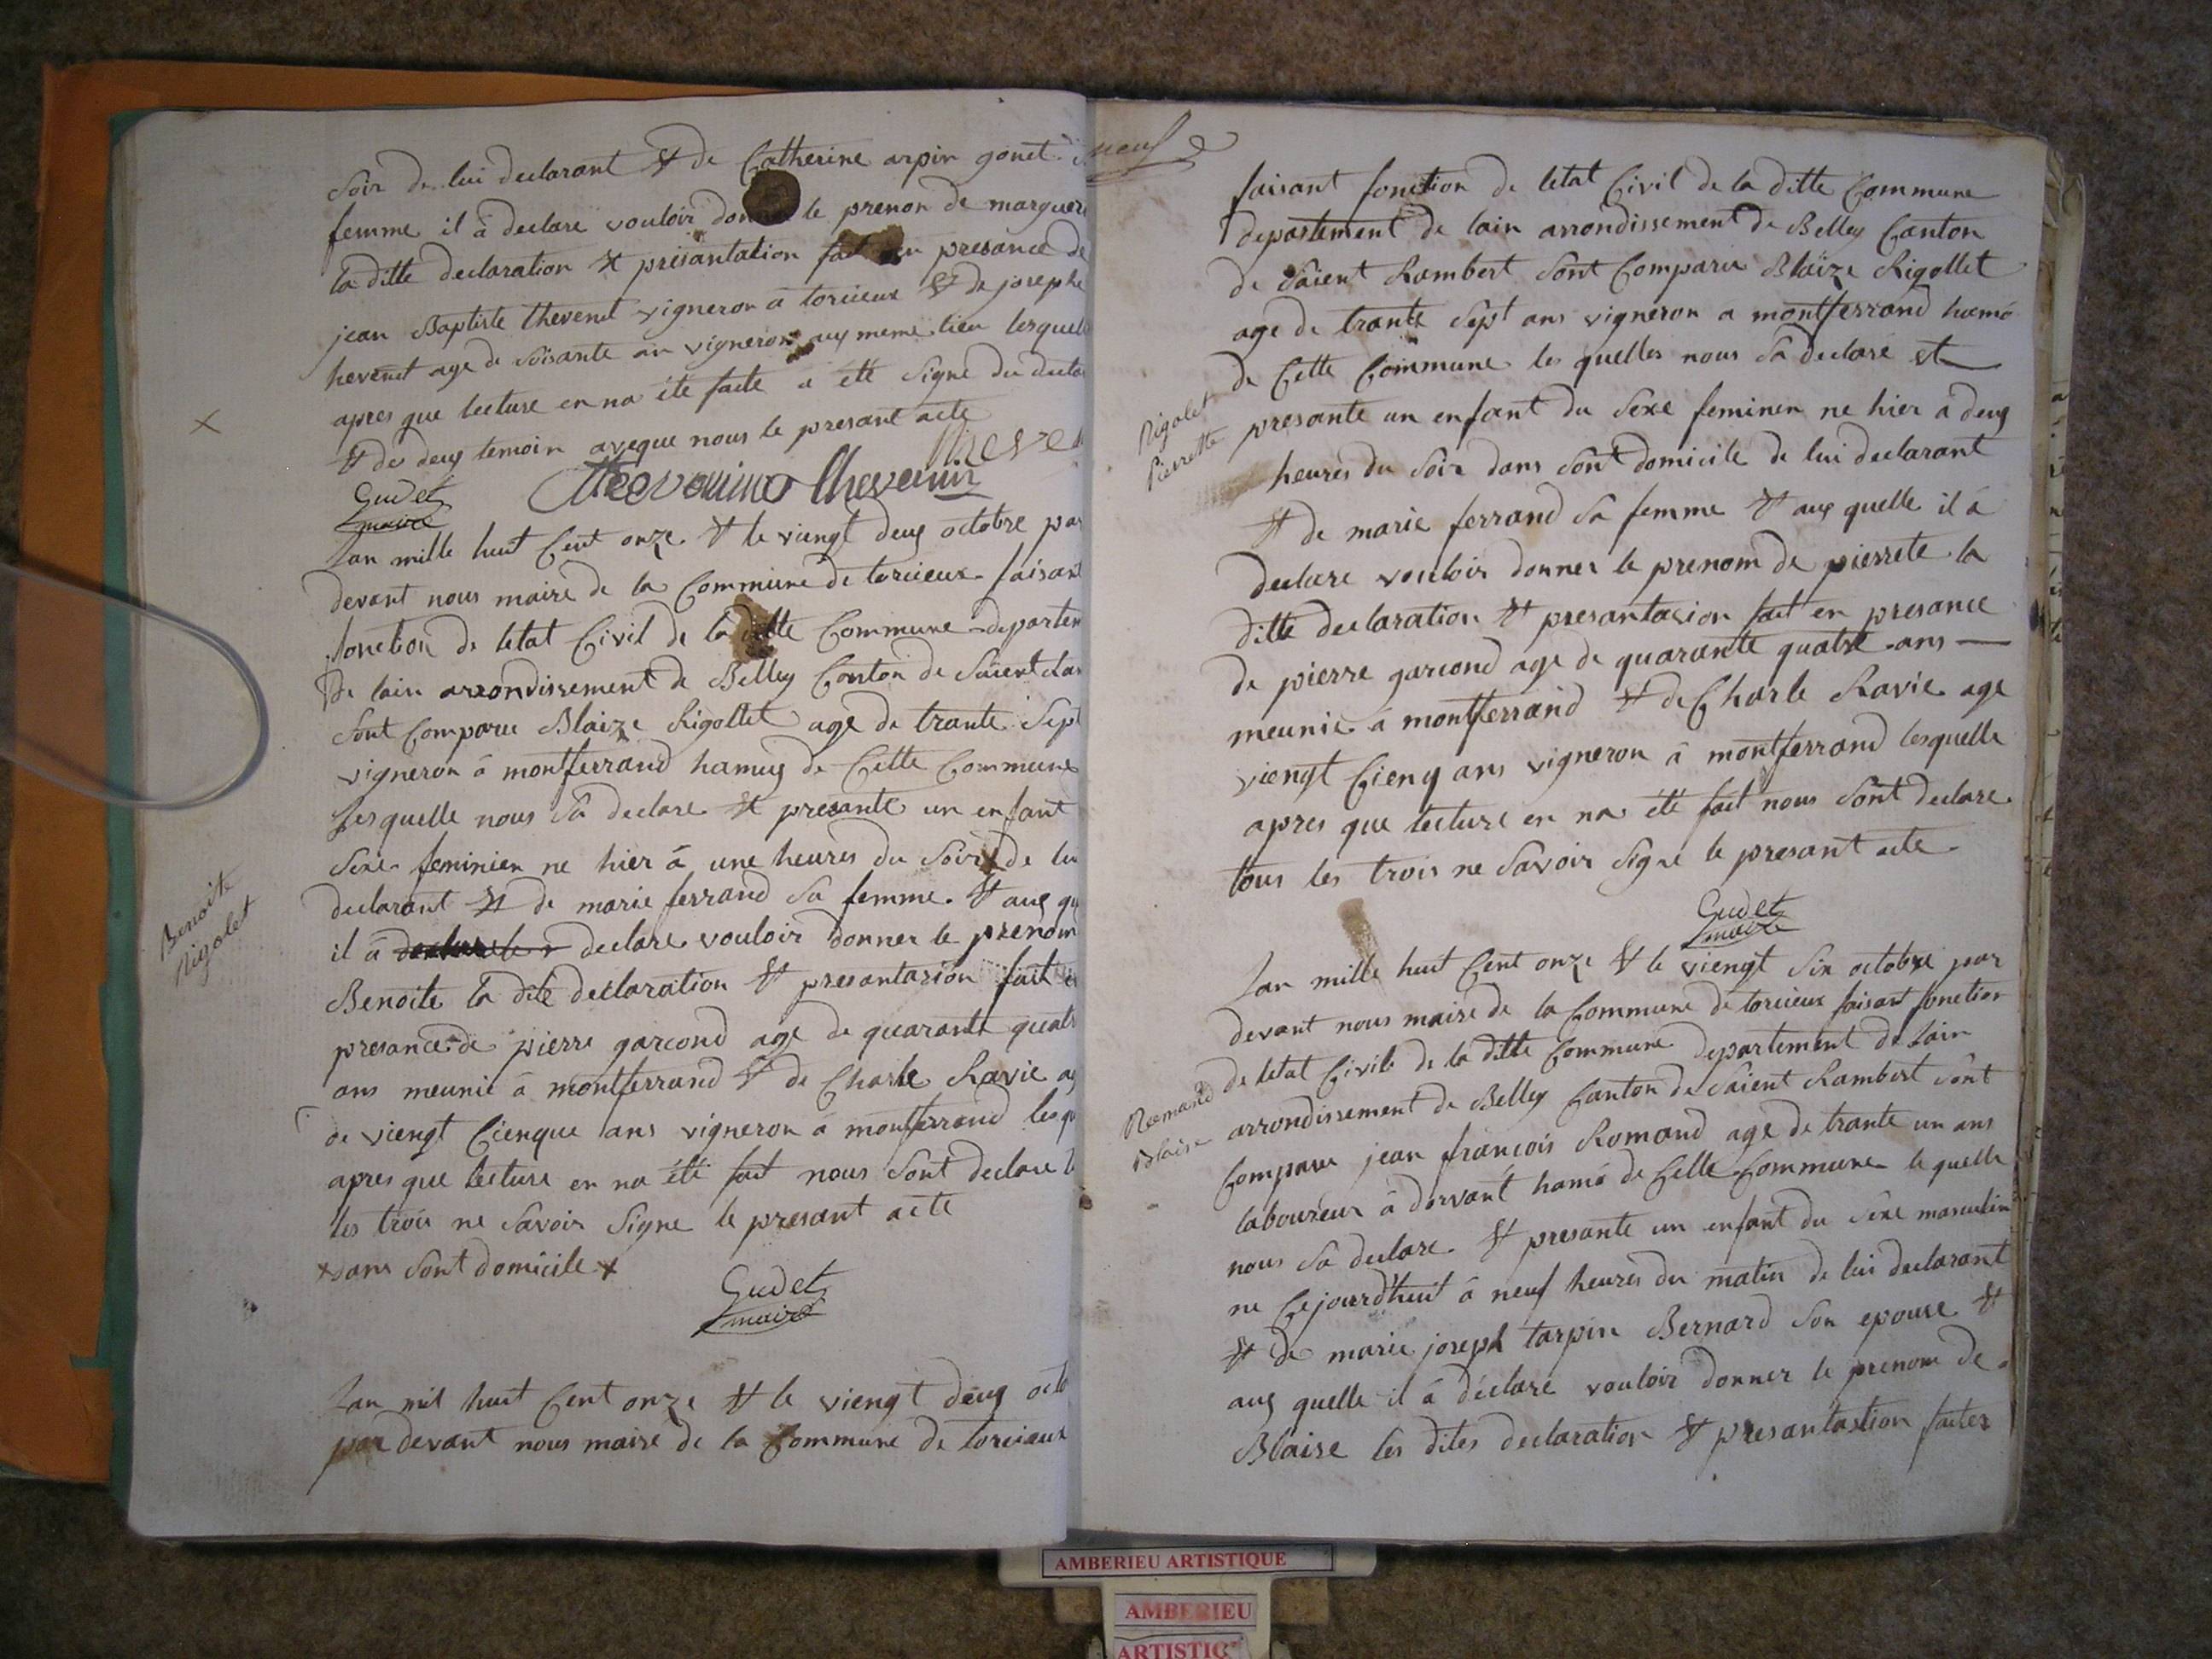 soir de lui declarant et de Catherine arpin gonet
femme il à declare vouloir le prenon de margueri
la ditte declaration et présantation fait en presance de
jean Baptiste thevenet vigneron à torcieux et de josephe
hevenet age de soisante an vigneron aux meme lieu lesquell
apres que lecture en na été faite a été signe du decla
et des deux temoin aveque nous le presant acte
theve
Gudet
maire
Thevenin
Lan mille huit Cent onze et le viengt deux octobre par
devant nous maire de la Commune de torcieux faisant
fonction de letat Civil de la ditte Commune departem
de lain arrondissement de Belley Conton de saient Ram
sont Comparu Blaize Rigollet age de trante sept
vigneron à montferrand hamux de Cette Commune
lesquelle nous sà declare et presante un enfant
sexe feminien ne hier à une heures du soir x de lui
declarant et de marie ferrand sa femme. et aux qu
il à declare vouloir donner le prenom
Benoite
Rigolet
Benoite la dite declaration et presantasion fait en
presance de pierre garcond age de quarante quatr
ans meunié à montferrand et de Charle Ravie ag
de viengt Cienque ans vigneron à montferrand lesqu
apres que lecture en na été fait nous sont declare t
les trois ne savoir signe le presant acte
x dans sont domicile x
Gudet
maire
Lan mil huit Cent onze et le viengt deux octo
par devant nous maire de la Commune de torciaux
neuf
faisant fonction de letat Civil de la ditte Commune
departement de lain arrondissement de Belley Canton
de saient Rambert sont Comparu Blaize Rigollet
age de trante sept ans vigneron a montferrand hamó
de Cette Commune les quelles nous sa declare et
Rigolet
Pierrette
presante un enfant du sexe feminen ne hier à deux
heures du soir dans sont domicile de lui declarant
et de marie ferrand sa femme et aux quelle il à
declare vouloir donner le prenom de pierrete la
ditte declaration et presantasion fait en presance
de pierre garcond age de quarante quatre ans
meunié à montferrand et de Charle Ravie age
viengt Cienq ans vigneron à montferrand lesquelle
apres que lecture en na été fait nous sont declare
tous les trois ne savoir signe le presant acte
Gudet
maire
Lan mille huit Cent onze et le viengt six octobre par
devant nous maire de la Commune de torcieux faisant fonction
de letat Civile de la ditte Commune departement de lain
Romand
Blaise
arrondissement de Belley Canton de saient Rambert sont
Comparu jean françois Romand age de trante un ans
laboureur à dorvant hamó de Cette Commune lequelle
nous sa declare. et presante un enfant du sexe masculin
ne Cejourdhuit à neuf heures du matin de lui declarant
et de marie joseph tarpin Bernard son epouse et
aux quelle il à déclaré vouloir donner le prenom de
Blaise les dites declaration et presantastion faites
AMBERIEU ARTISTIQUE
AMBERIEU
ARTISTIQ